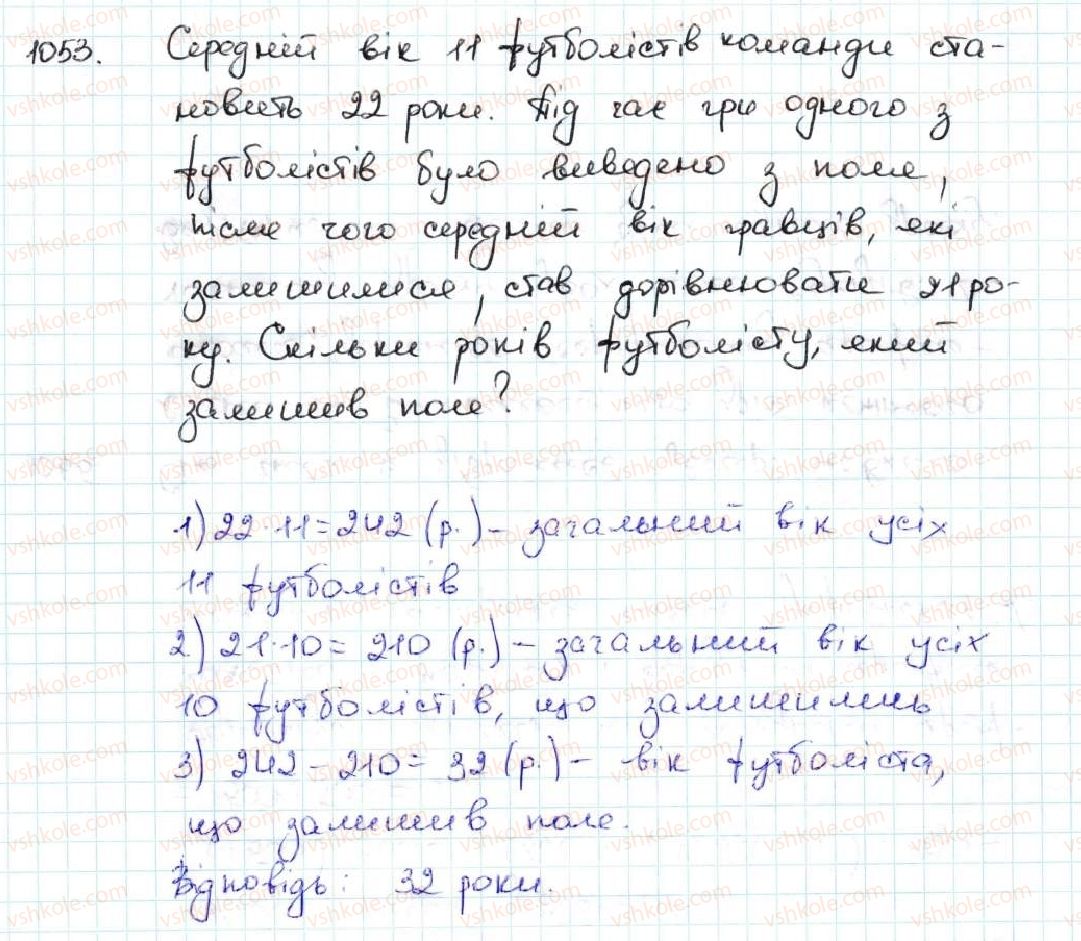 1053. Середній вік 11 футболістів команди ста-
новить 22 роки. Під час гри одного з
футболістів було виведено з поля,
після чого середній вік гравців, які
залишилися, став дорівнювати 21 ро-
ку. Скільки років футболісту, який
залишив поле?
1) 22·11=242 (р.) – загальний вік усіх
11 футболістів
2) 21·10= 210 (р.) – загальний вік усіх
10 футболістів, що залишились
3) 242 – 210= 32 (р.) – вік футболіста,
що залишив поле.
Відповідь: 32 роки.